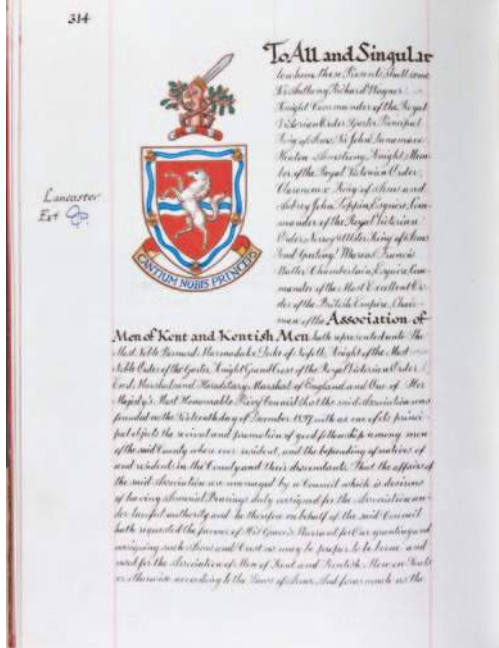 314
To All and Singular
to whom these Presents shall come
Sir Anthony Richard Wagner
Knight Commander of the Royal
Victorian Order Garter Principal
King of Arms Sir John Dunamace
Heaton-Armstrong, Knight, Mem-
ber of the Royal Victorian Order,
Clarenceux King of Arms and
Aubrey John Toppin, Esquire, Com-
mander of the Royal Victorian
Order, Norroy & Ulster King of Arms
Send Greeting! Marcus Francis
Butler Chamberlain, Esquire, Com-
mander of the Most Excellent Or-
der of the British Empire, Chair-
man of the Association of
Lancaster
Ext
CANTIUM NOBIS PRINCEPS
Men of Kent and Kentish Men hath represented unto The
Most Noble Bernard Marmaduke, Duke of Norfolk, Knight of the Most
Noble Order of the Garter, Knight Grand Cross of the Royal Victorian Order,
Earl Marshal and Hereditary Marshal of England and One of Her
Majesty's Most Honourable Privy Council that the said Association was
founded on the day of December 1897 with as one of its princi-
pal objects the revival and promotion of good fellowship among men
of the said County where ever resident, and the of natives of
and residents in the County and their descendants That the affairs of
the said Association are managed by a Council which is desirous
of having Armorial Bearings duly assigned for the Association un-
der lawful authority and he therefore on behalf of the said Council
hath requested the favour of His Grace's Warrant for Our granting and
assigning such Arms and Crest as may be proper to be borne and
used for the Association of Men of Kent and Kentish Men on Seals
or otherwise according to the Laws of Arms And forasmuch as the